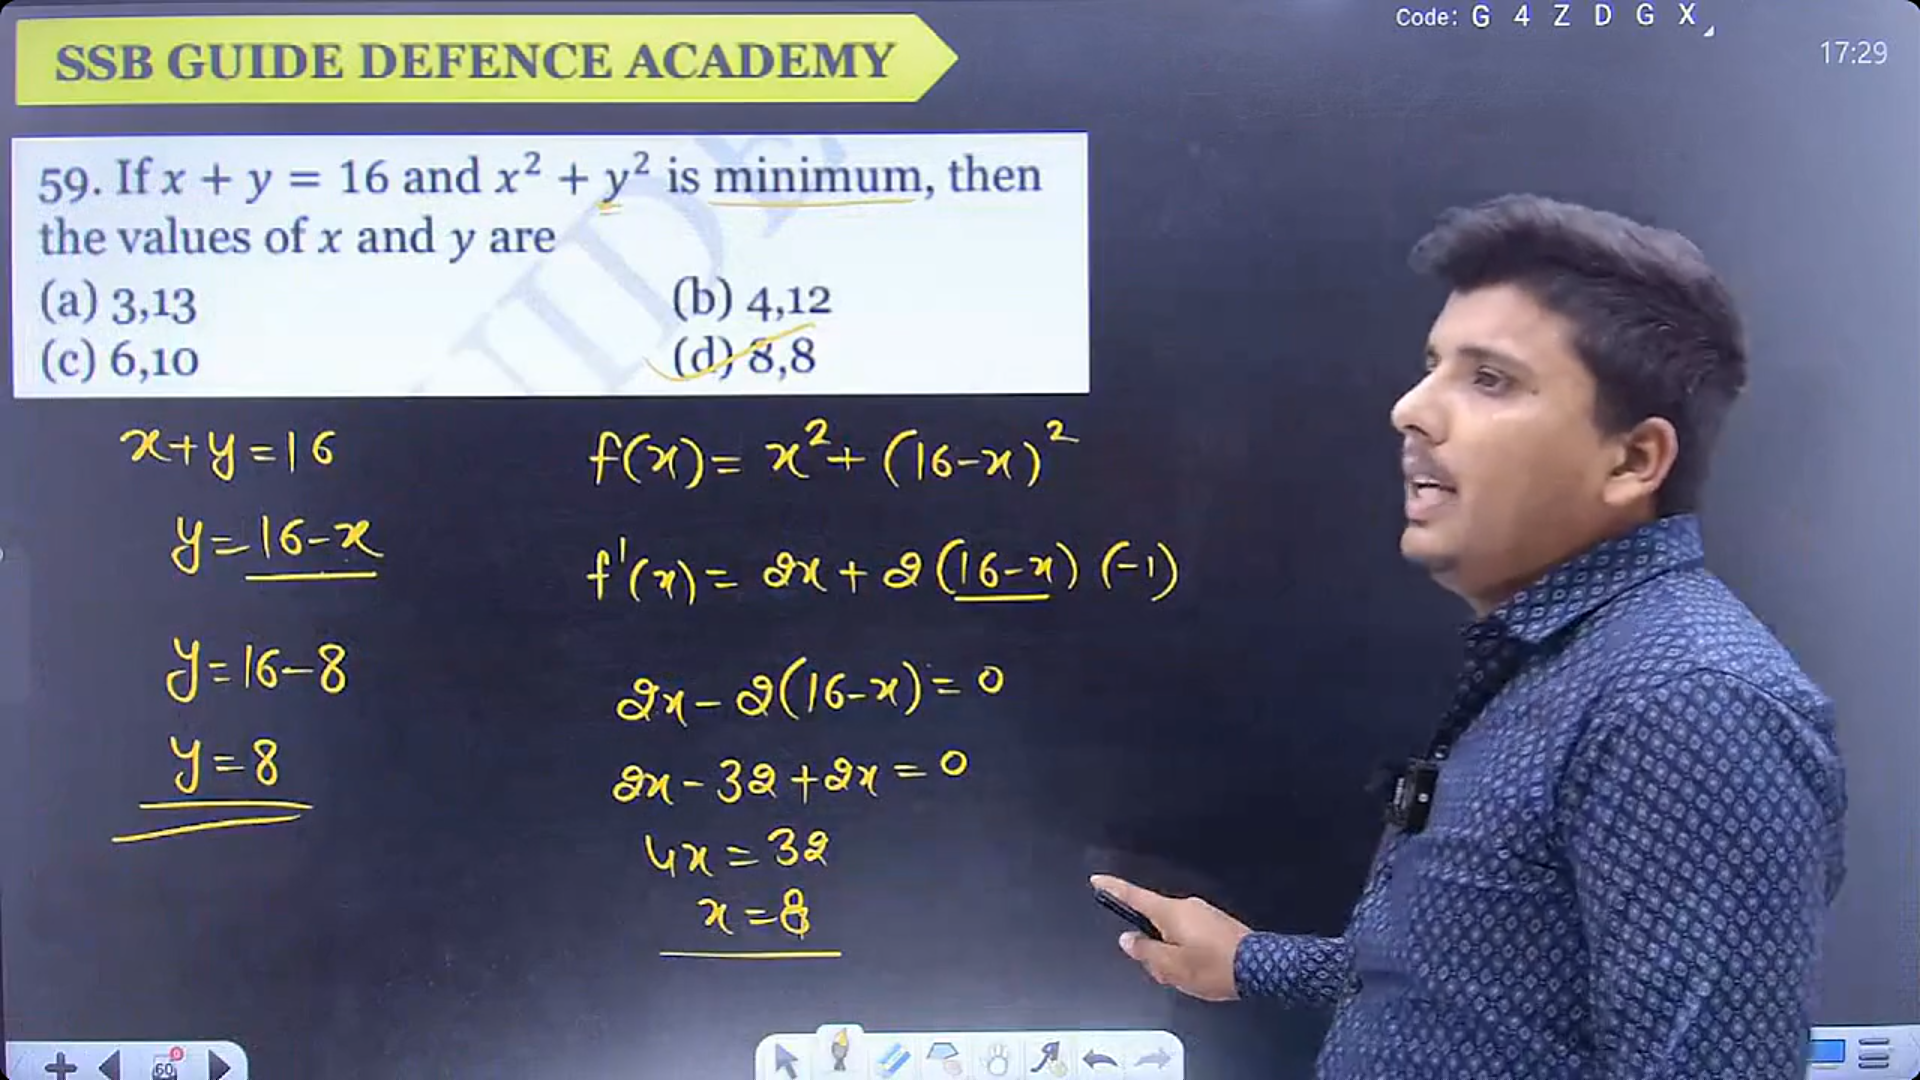 Code: G 4 Z D G X
17:29
SSB GUIDE DEFENCE ACADEMY
59. If x + y = 16 and x² + y² is minimum, then
the values of x and y are
(a) 3,13 (b) 4,12
(c) 6,10 (d) 8,8
x+y=16
y=16-x
y=16-8
y=8
f(x)= x²+(16-x)²
f'(x)= 2x+2(16-x)(-1)
2x-2(16-x)=0
2x-32+2x=0
4x=32
x=8
60